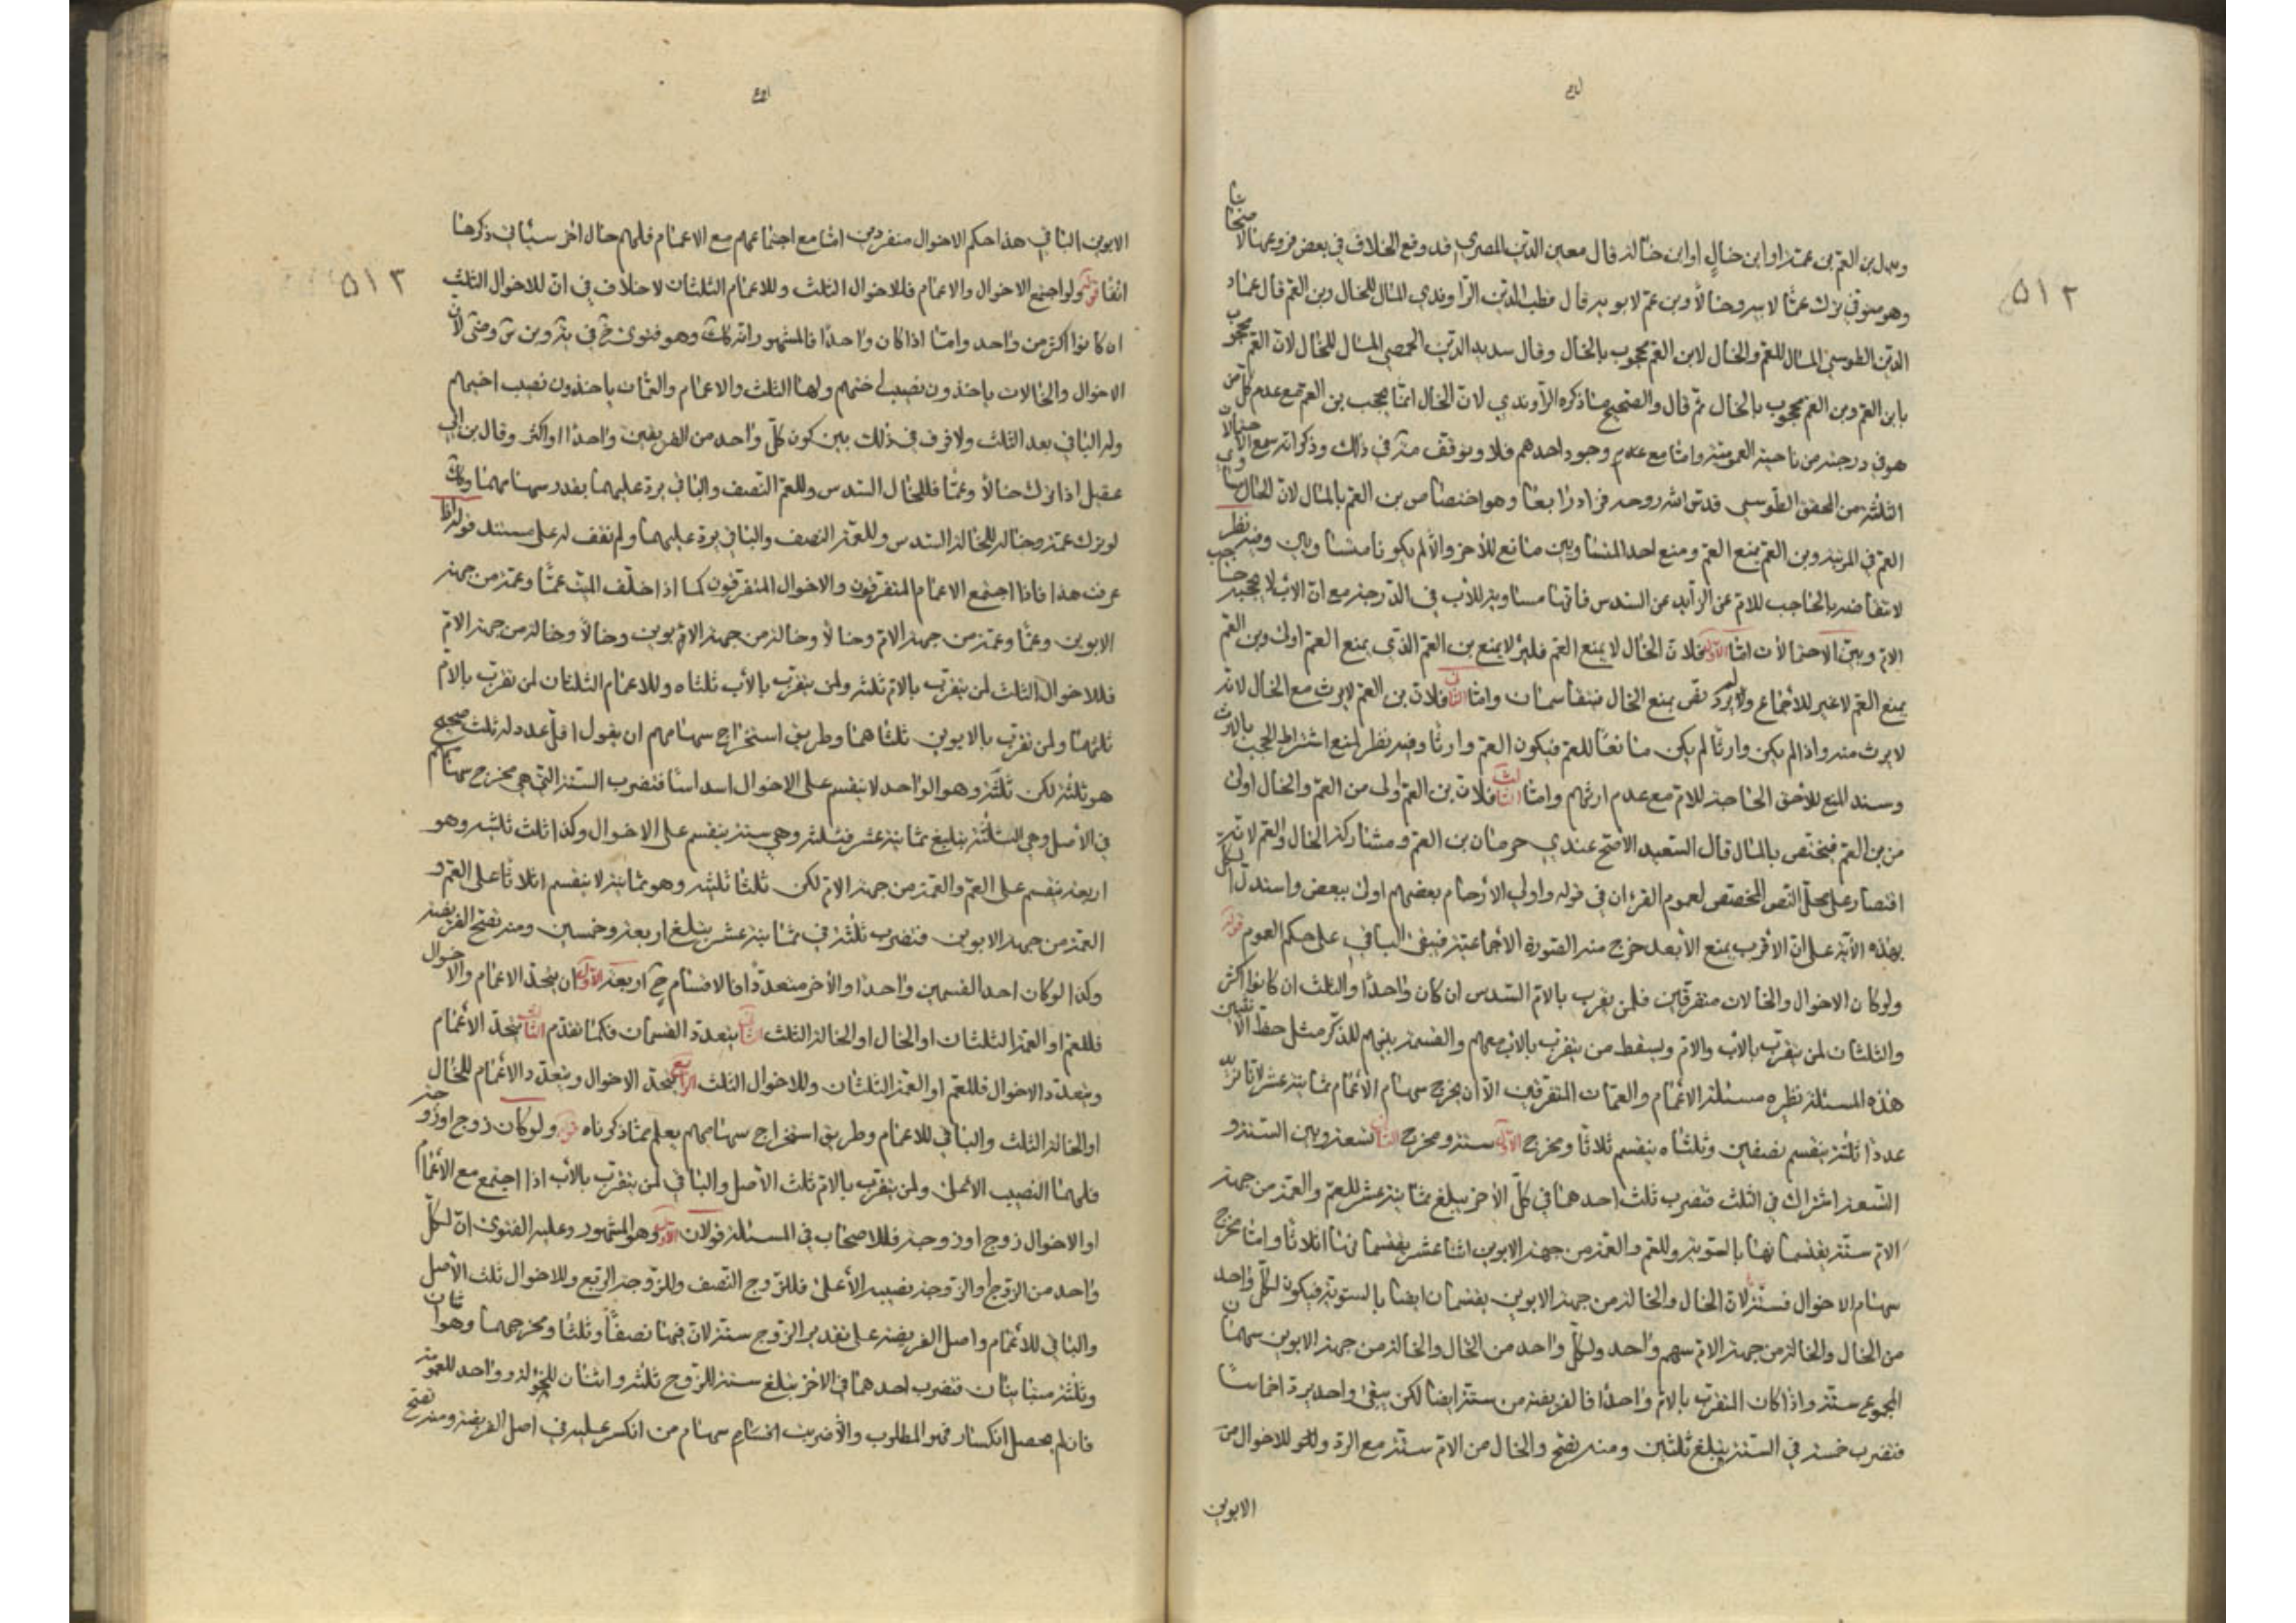 ٥١٢
وبدل بن العم بن عمته او ابن خال او ابن خاله قال معين الدين المصري قد وقع الخلاف في بعض فروعها لاصحابنا
وهو متوفى ترك عما لاب وخالا وبن عم لابويه قال قطب الدين الراوندي المال للخال وبن العم قال عماد
الدين الطوسي المال للعم والخال لابن العم محجوب بالخال وقال سديد الدين الحمصي المال للخال لان العم محجوب
بابن العم وبن العم محجوب بالخال ثم قال والصحيح ما ذكره الراوندي لان الخال انما يحجب بن العم مع عدم كل من
هو في درجته من ناحية العمومة واما مع وجود احدهم فلا وتوقف في ذلك وذكر انه سمع الاحتمالات
الثلثة من المحقق الطوسي قدس الله روحه فزاد رابعا وهو اختصاص بن العم بالمال لان الخال يساوي
العم في المرتبة وبن العم يمنع العم ومنع احد المتساويين مانع للآخر والا لم يكونا متساويين وفيه نظر
لانتقاضه بالحاجب للام عن الزايد عن السدس فانها مساوية للأب في الدرجة مع ان الاب لا يحجبه حاجب
الام وبين الاحتمالات اما الاول فلان الخال لا يمنع العم فلئلا يمنع بن العم الذي يمنع العم اولى وبن العم
يمنع العم لا غير للاجماع ولم يرد نص بمنع الخال فيتقاسمان واما الثاني فلان بن العم لا يرث مع الخال لانه
لا يرث منه واذا لم يكن وارثا لم يكن مانعا للعم فيكون العم وارثا وفيه نظر لمنع اشتراط الحجب بالارث
وسند المنع للاخوة الحاجبة للام مع عدم ارثهم واما الثالث فلان بن العم اولى من العم والخال اولى
من بن العم فيختص بالمال قال السعيد الاصح عندي حرمان بن العم ومشاركة الخال والعم لانه
اقتصار على محل النص المخصص لعموم القرءان في قوله واولي الارحام بعضهم اولى ببعض واستدل الكل
بهذه الآية على ان الاقرب يمنع الأبعد خرج منه الصورة الاجماعية فيبقى الباقي على حكم العموم قوله
ولو كان الاخوال والخالات متفرقين فلمن يقرب بالام السدس ان كان واحدا والثلث ان كانوا اكثر
والثلثان لمن يتقرب بالاب والام ويسقط من يتقرب بالاب معهم والقسمة بينهم للذكر مثل حظ الانثيين
هذه المسئلة نظيره مسئلة الاعمام والعمات المتفرقين الا ان مخرج سهام الاعمام ثمانية عشر لانا نريد
عددا ثلثه ينقسم نصفين وثلثاه ينقسم ثلاثا ومخرج الاول ستة ومخرج الثاني تسعة وبين الستة و
التسعة اشتراك في الثلث فتضرب ثلث احدهما في كل الآخر يبلغ ثمانية عشر للعم والعمة من جهة
الام ستة يقتسمانها بالسوية وللعم والعمة من جهة الابوين اثنا عشر يقتسمانها اثلاثا واما مخرج
سهام الاخوال فستة لان الخال والخالة من جهة الابوين يقتسمان ايضا بالسوية فيكون لكل واحد
من الخال والخالة من جهة الام سهم واحد ولكل واحد من الخال والخالة من جهة الابوين سهمان
المجموع ستة واذا كان المتقرب بالام واحدا فالفريضة من ستة ايضا لكن يبقى واحد يرد اخماسا
فتضرب خمسة في الستة يبلغ ثلثين ومنه تصح والخال من الام ستة مع الرد وللاخوال من
الابوين
٥١٣
الابوين الباقي هذا حكم الاخوال منفردين اما مع اجتماعهم مع الاعمام فلهم حال اخر سيأتي ذكرها
انفا قوله ولو اجتمع الاخوال والاعمام فللاخوال الثلث وللاعمام الثلثان لا خلاف في ان للاخوال الثلث
ان كانوا اكثر من واحد واما اذا كان واحدا فالمشهور انه كذلك وهو فتوى
الاخوال والخالات ياخذون نصيب اختهم ولها الثلث والاعمام والعمات ياخذون نصيب اخيهم
وله الباقي بعد الثلث ولا فرق في ذلك بين كون كل واحد من الفريقين واحدا او اكثر وقال بن ابي
عقيل اذا ترك خالا وعما فللخال السدس وللعم النصف والباقي يرد عليهما بقدر سهامهما وكذلك
لو ترك عمة وخاله للخالة السدس وللعمة النصف والباقي يرد عليهما ولم نقف له على مستند قوله اذا
عرفت هذا فاذا اجتمع الاعمام المتفرقون والاخوال المتفرقون كما اذا خلف الميت عما وعمة من جهة
الابوين وعما وعمة من جهة الام وخالا وخالة من جهة الابوين وخالا وخالة من جهة الام
فللاخوال الثلث لمن يتقرب بالام ثلثه ولمن يتقرب بالأب ثلثاه وللاعمام الثلثان لمن تقرب بالام
ثلثهما ولمن تقرب بالابوين ثلثاهما وطريق استخراج سهامهم ان يقول اقل عدد له ثلث صحيح
هو ثلثة لكن ثلثه وهو الواحد لا ينقسم على الاخوال اسداسا فتضرب الستة التي هي مخرج سهامهم
في الأصل وهي الثلثة يبلغ ثمانية عشر فثلثه وهي ستة ينقسم على الاخوال وكذا ثلث ثلثيه وهو
اربعة ينقسم على العم والعمة من جهة الام لكن ثلثا ثلثيه وهو ثمانية لا ينقسم اثلاثا على العم و
العمة من جهة الابوين فتضرب ثلثة في ثمانية عشر يبلغ اربعة وخمسين ومنه تصح الفريضة
وكذا لو كان احد القسمين واحدا والآخر متعددا فالاقسام ح اربعة الاول ان يتحد الاعمام والاخوال
فللعم او العمة الثلثان او الخال او الخالة الثلث الثاني يتعدد القسمان فكما تقدم الثالث يتحد الأعمام
ويتعدد الاخوال فللعم او العمة الثلثان وللاخوال الثلث الرابع يتحد الاخوال ويتعدد الأعمام للخال
او الخالة الثلث والباقي للاعمام وطريق استخراج سهامهم يعلم مما ذكرناه قوله ولو كان زوج او زوجة
فلهما النصيب الاعلى ولمن يتقرب بالام ثلث الاصل والباقي لمن يتقرب بالأب اذا اجتمع مع الأعمام
او الاخوال زوج او زوجة فللاصحاب في المسئلة قولان الاول وهو المشهور وعليه الفتوى ان لكل
واحد من الزوج او الزوجة نصيبه الأعلى فللزوج النصف وللزوجة الربع وللاخوال ثلث الأصل
والباقي للأعمام واصل الفريضة على تقدير الزوج ستة لان فيها نصفا وثلثا ومخرجهما وهو اثنان
وثلثة متباينان فتضرب احدهما في الاخر يبلغ ستة للزوج ثلثة واثنان للخولة وواحد للعمومة
فان لم يحصل انكسار فهو المطلوب والا ضربت اقسام سهام من انكسر عليه في اصل الفريضة ومنه تصح